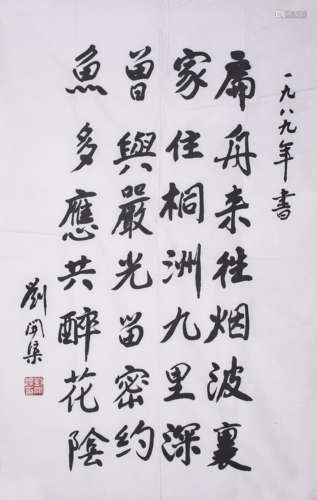 一九八九年書
扁舟来往烟波裏
家住桐洲九里深
曾與嚴光留密約
魚多應共醉花陰
劉開渠